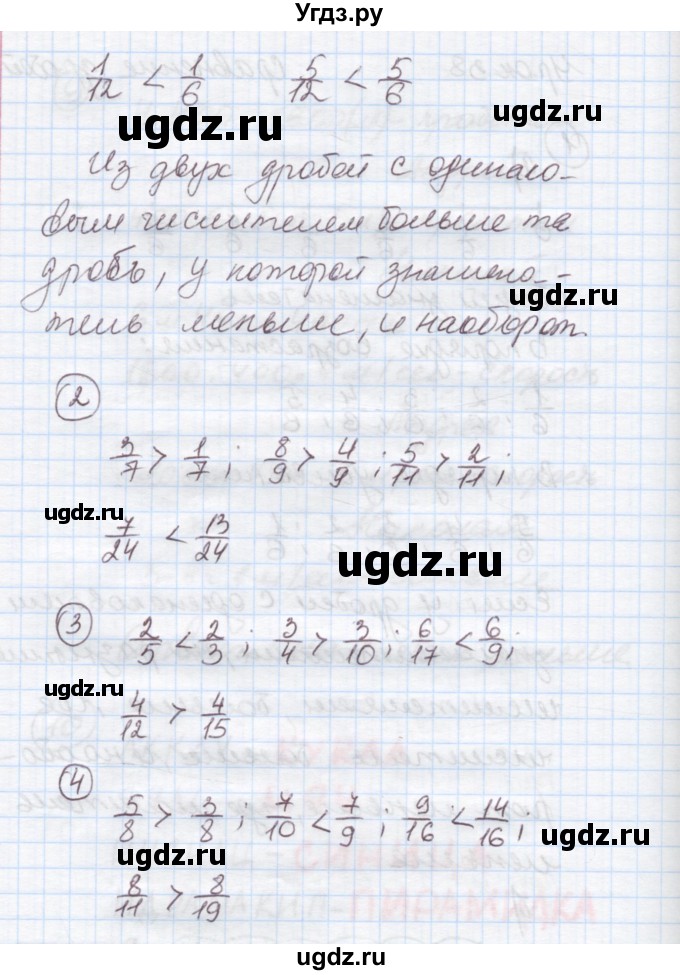 Угдз.ру
1/12 < 1/6   5/12 < 5/6
ugdz.ru
ugdz.ru
Из двух дробей с одинако-
вым числителем больше та
дробь, у которой знамена-
ugdz.ru
тель меньше, и наоборот.
2
3/7 > 1/7; 8/9 > 4/9; 5/11 > 2/11;
ugdz.ru
7/24 < 13/24
ugdz.ru
3
2/5 < 2/3; 3/4 > 3/10; 6/17 < 6/9;
ugdz.ru
4/12 > 4/15
4
5/8 > 3/8; 7/10 < 7/9; 9/16 < 14/16;
ugdz.ru
ugdz.ru
8/11 > 8/19
ugdz.ru
ugdz.ru